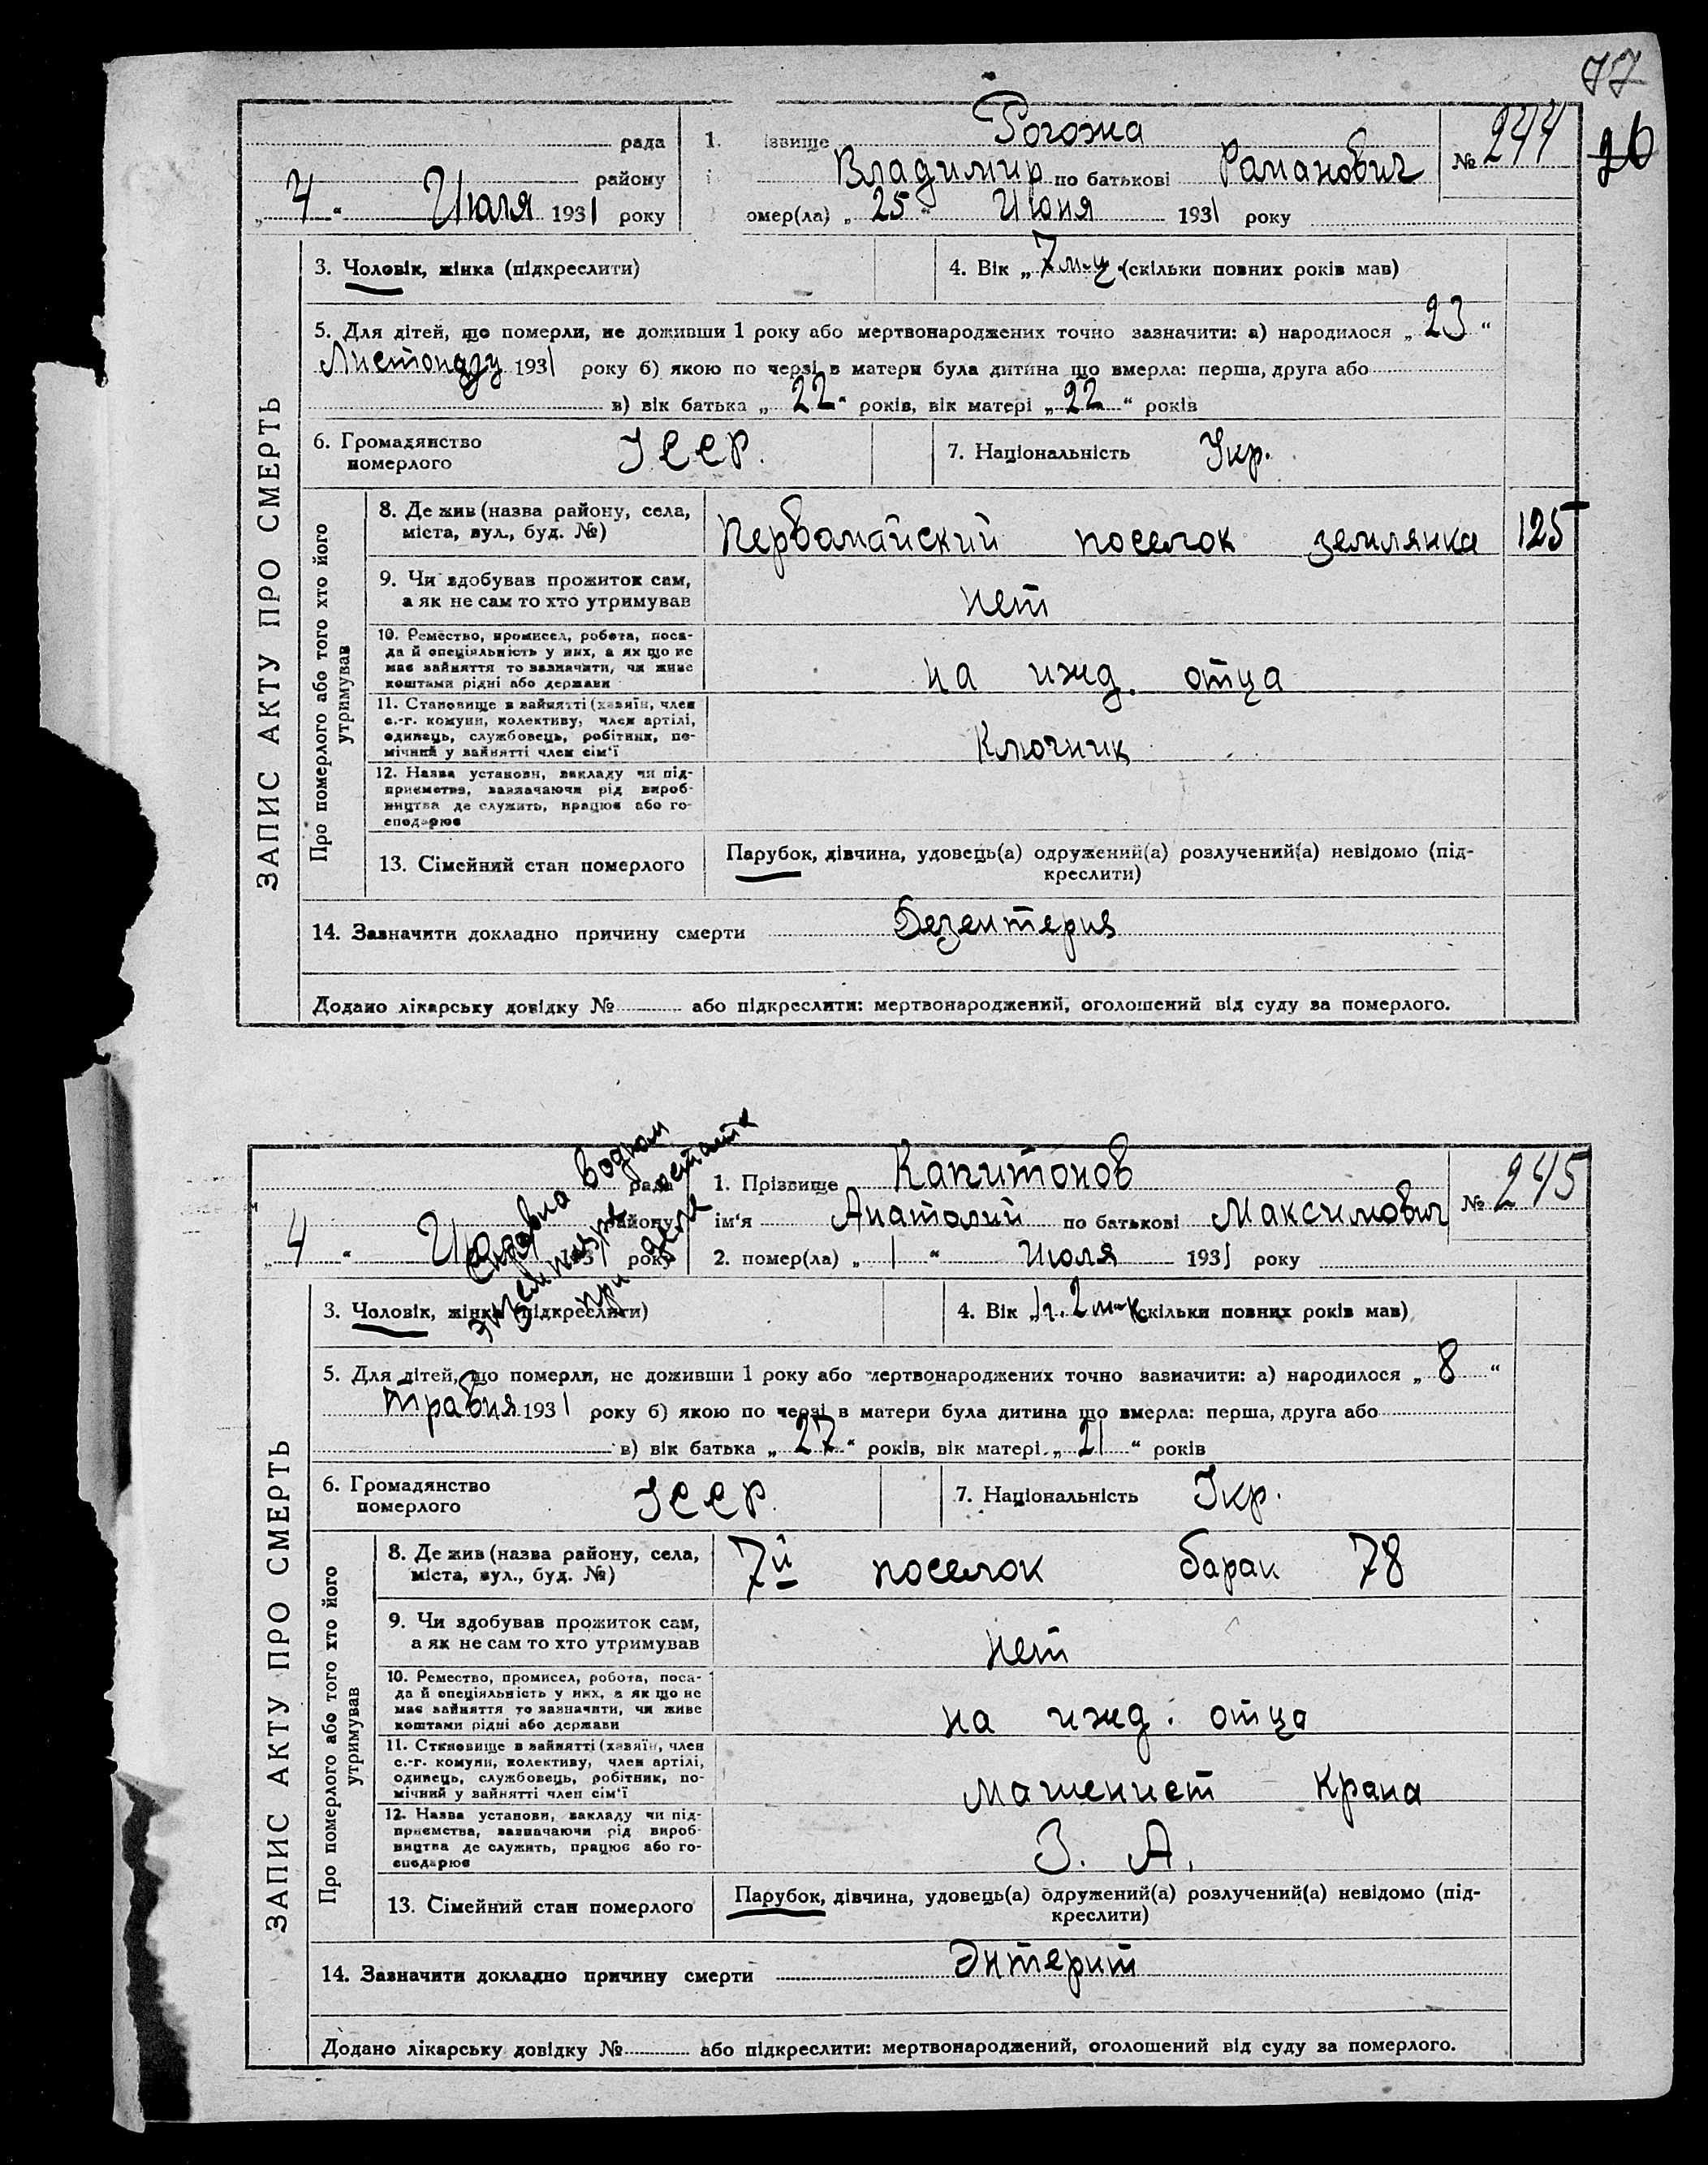 77
рада
1. ізвище Рогожа
№ 244
26
району
Владимир по батькові Раманович
„ 4 “ Июля 1931 року
омер(ла) „ 25 “ Июня 1931 року
3. Чоловік, жінка (підкреслити)
4. Вік „ 7 м-ц. (скільки повних років мав)
5. Для дітей, що померли, не доживши 1 року або мертвонароджених точно зазначити: а) народилося „ 23 “
Листопаду 1931 року б) якою по черзі в матери була дитина що вмерла: перша, друга або
в) вік батька „ 22 “ років, вік матері „ 22 “ років
6. Громадянство померлого УССР.
7. Національність Укр.
ЗАПИС АКТУ ПРО СМЕРТЬ
Про померлого або того хто його утримував
8. Де жив (назва району, села,
міста, вул., буд. №)
Первамайский поселок землянка 125
9. Чи здобував прожиток сам,
а як не сам то хто утримував
нет
10. Ремество, промисел, робота, поса-
да й спеціяльність у них, а як що не
має зайняття то зазначити, чи живе
коштами рідні або держави
на ижд. отца
11. Становище в зайнятті (хазяїн, член
с.-г. комуни, колективу, член артілі,
одинець, службовець, робітник, по-
мічний у зайнятті член сім'ї
Ключник
12. Назва установи, закладу чи під-
приємства, зазначаючи рід вироб-
ництва де служить, працює або го-
сподарює
13. Сімейний стан померлого
Парубок, дівчина, удовець(а) одружений(а) розлучений(а) невідомо (під-
креслити)
14. Зазначити докладно причину смерти Дезентерия
Додано лікарську довідку № або підкреслити: мертвонароджений, оголошений від суду за померлого.
рада
1. Прізвище Капитонов
№ 245
району
ім'я Анаталий по батькові Максимович
„ 4 “ Июля 193 року
2. помер(ла) „ 1 “ Июля 1931 року
Справка в одном
экземпляре
при деле
3. Чоловік, жінка (підкреслити)
4. Вік „ 1 г. 2 м-ц (скільки повних років мав)
5. Для дітей, що померли, не доживши 1 року або мертвонароджених точно зазначити: а) народилося „ 8 “
травня 1931 року б) якою по черзі в матери була дитина що вмерла: перша, друга або
в) вік батька „ 27 “ років, вік матері „ 21 “ років
6. Громадянство померлого УССР.
7. Національність Укр.
ЗАПИС АКТУ ПРО СМЕРТЬ
Про померлого або того хто його утримував
8. Де жив (назва району, села,
міста, вул., буд. №)
7й поселок барак 78
9. Чи здобував прожиток сам,
а як не сам то хто утримував
нет
10. Ремество, промисел, робота, поса-
да й спеціяльність у них, а як що не
має зайняття то зазначити, чи живе
коштами рідні або держави
на ижд. отца
11. Становище в зайнятті (хазяїн, член
с.-г. комуни, колективу, член артілі,
одинець, службовець, робітник, по-
мічний у зайнятті член сім'ї
машенист крана
12. Назва установи, закладу чи під-
приємства, зазначаючи рід вироб-
ництва де служить, працює або го-
сподарює
З. А.
13. Сімейний стан померлого
Парубок, дівчина, удовець(а) одружений(а) розлучений(а) невідомо (під-
креслити)
14. Зазначити докладно причину смерти Энтерит
Додано лікарську довідку № або підкреслити: мертвонароджений, оголошений від суду за померлого.